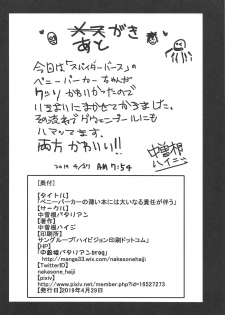 メスがき
あと
今回は「スパイダーバース」の
ペニーパーカーちゃんが
クッソかわいかったので
いきおいにまかせてかきました。
その流れでグウェンプールにも
ハマってます。
両方かわいい!!
2019 4/27 AM 7:54
中曽根
ハイジ
【奥付】
【タイトル】
「ペニーパーカーの薄い本には大いなる責任が伴う」
【サークル】
中曽根バタリアン
【著作】
中曽根ハイジ
【印刷所】
サングループ「ハイビジョン印刷ドットコム」
【HP】
「中曽根バタリアンblog」
http://manga33.wix.com/nakasonehaiji
【TwitterID】
nakasone_haiji
【pixiv】
http://www.pixiv.net/member.php?id=16527273
【発行日】2019年4月29日